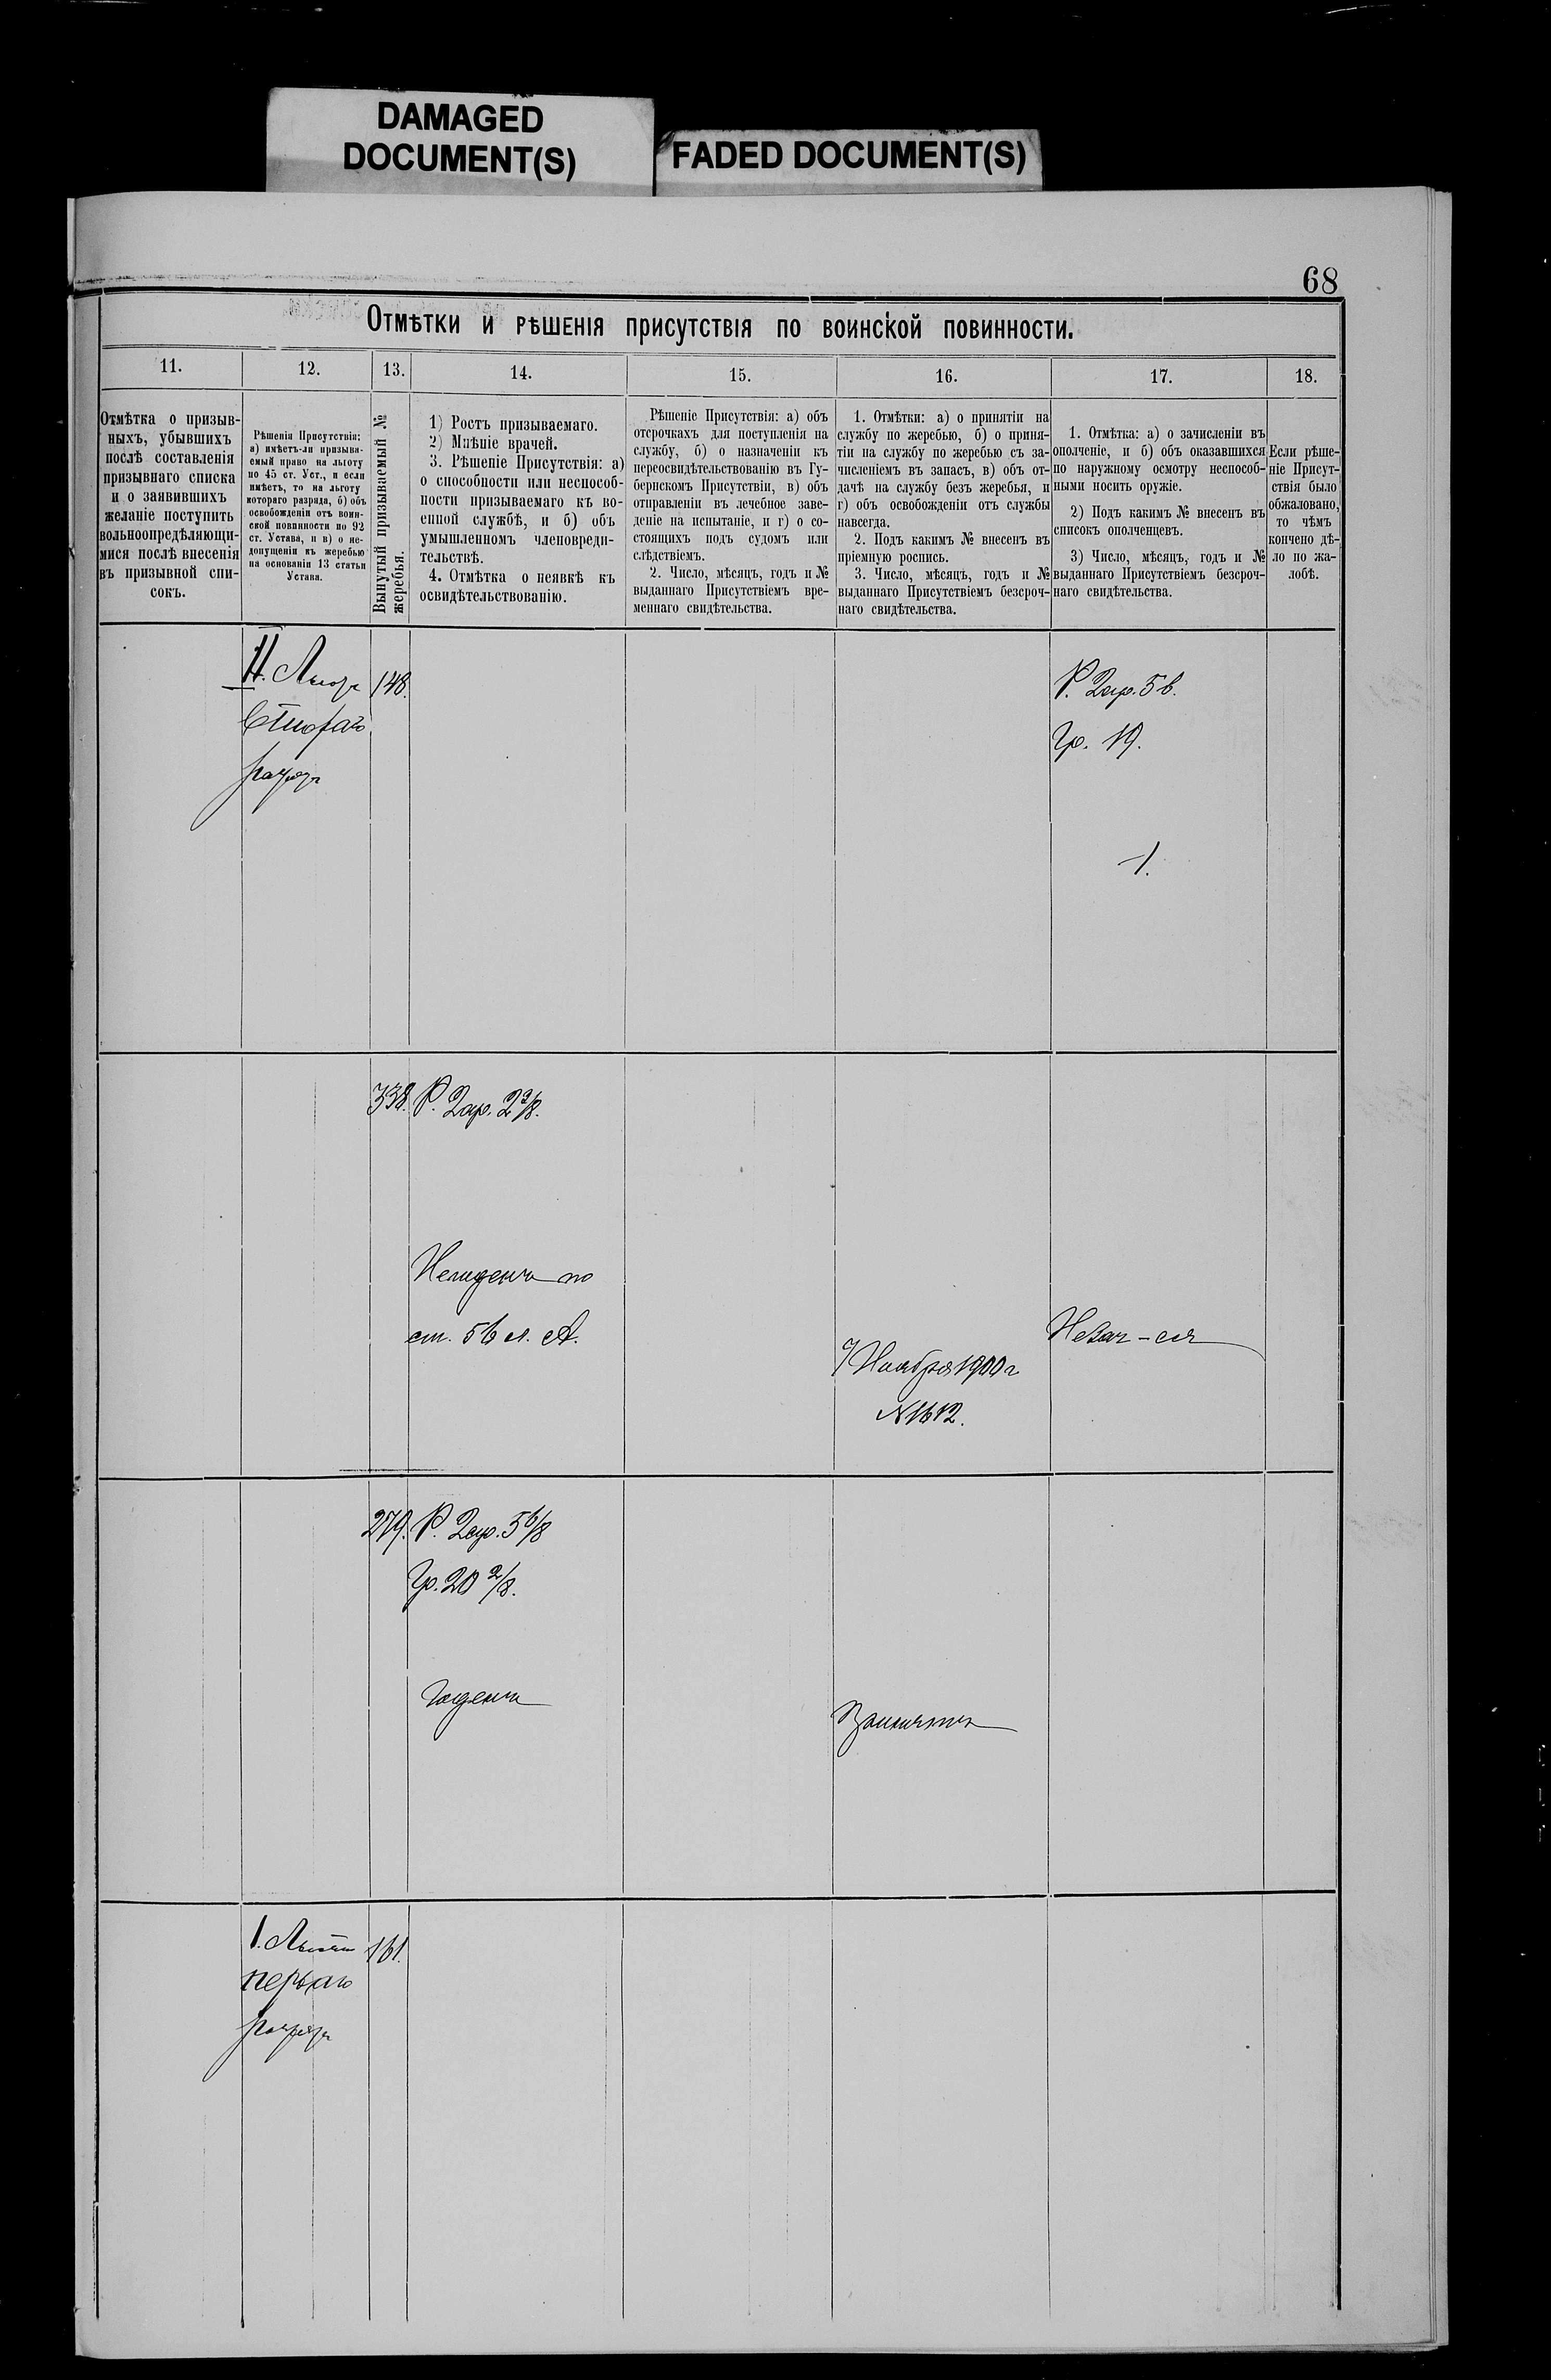 DAMAGED
DOCUMENT(S)
FADED DOCUMENT(S)
68
Отмѣтки и рѣшенія присутствія по воинской повинности.
11.
Отмѣтка о призыв-
ныхъ, убывшихъ
послѣ составленія
призывнаго списка
и о заявившихъ
желаніе поступить
вольноопредѣляющи-
мися послѣ внесенія
въ призывной спи-
сокъ.
12.
Рѣшенія Присутствія:
а) имѣетъ-ли призыва-
емый право на льготу
по 45 ст. Уст., и если
имѣетъ, то на льготу
котораго разряда, б) объ
освобожденіи отъ воин-
ской повинности по 92
ст. Устава, и в) о не-
допущеніи къ жеребью
на основаніи 13 статьи
Устава.
13.
Вынутый призываемый №
жеребья.
14.
1) Ростъ призываемаго.
2) Мнѣніе врачей.
3. Рѣшеніе Присутствія: а)
о способности или неспособ-
ности призываемаго къ во-
енной службѣ, и б) объ
умышленномъ членовреди-
тельствѣ.
4. Отмѣтка о неявкѣ къ
освидѣтельствованію.
15.
Рѣшеніе Присутствія: а) объ
отсрочкахъ для поступленія на
службу, б) о назначеніи къ
переосвидѣтельствованію въ Гу-
бернскомъ Присутствіи, в) объ
отправленіи въ лечебное заве-
деніе на испытаніе, и г) о со-
стоящихъ подъ судомъ или
слѣдствіемъ.
2. Число, мѣсяцъ, годъ и №
выданнаго Присутствіемъ вре-
меннаго свидѣтельства.
16.
1. Отмѣтки: а) о принятіи на
службу по жеребью, б) о приня-
тіи на службу по жеребью съ за-
численіемъ въ запасъ, в) объ от-
дачѣ на службу безъ жеребья, и
г) объ освобожденіи отъ службы
навсегда.
2. Подъ какимъ № внесенъ въ
пріемную роспись.
3. Число, мѣсяцъ, годъ и №
выданнаго Присутствіемъ безсроч-
наго свидѣтельства.
17.
1. Отмѣтка: а) о зачисленіи въ
ополченіе, и б) объ оказавшихся
по наружному осмотру неспособ-
ными носить оружіе.
2) Подъ какимъ № внесенъ въ
списокъ ополченцевъ.
3) Число, мѣсяцъ, годъ и №
выданнаго Присутствіемъ безсроч-
наго свидѣтельства.
18.
Если рѣше-
ніе Присут-
ствія было
обжаловано,
то чѣмъ
кончено дѣ-
ло по жа-
лобѣ.
II.
148.
Р. 2 ар. 5 в.
Гр. 19.
1.
338.
Р. 2 ар. 2 2/8.
Негоденъ по
ст. 56 л. А.
7 Ноября 1900 г
N 1612.
279.
Р. 2 ар. 5 6/8
Гр. 20 2/8.
Годенъ
Принятъ
I.
161.
перваго
разряд